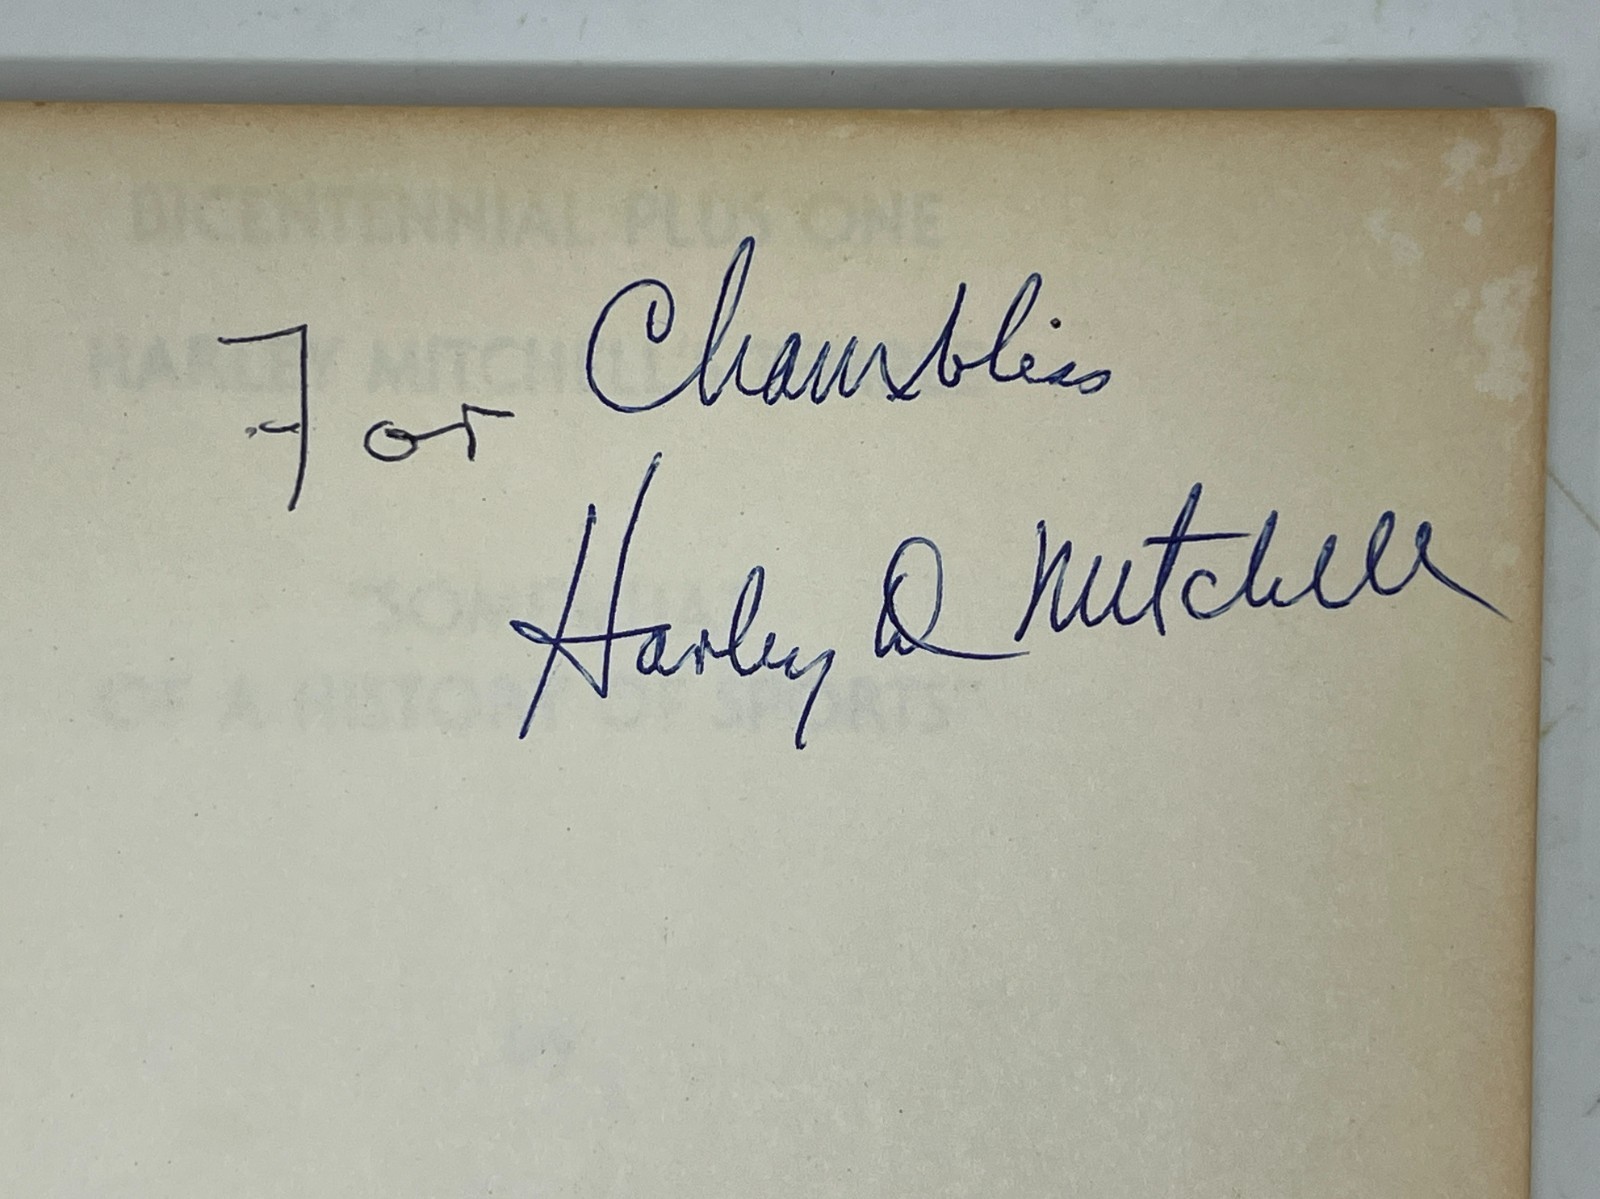 BICENTENNIAL PLUS ONE
For Chambliss
HARLEY MITCHELL'S
Harley D Mitchell
"SOMEWHAT
OF A HISTORY OF SPORTS"